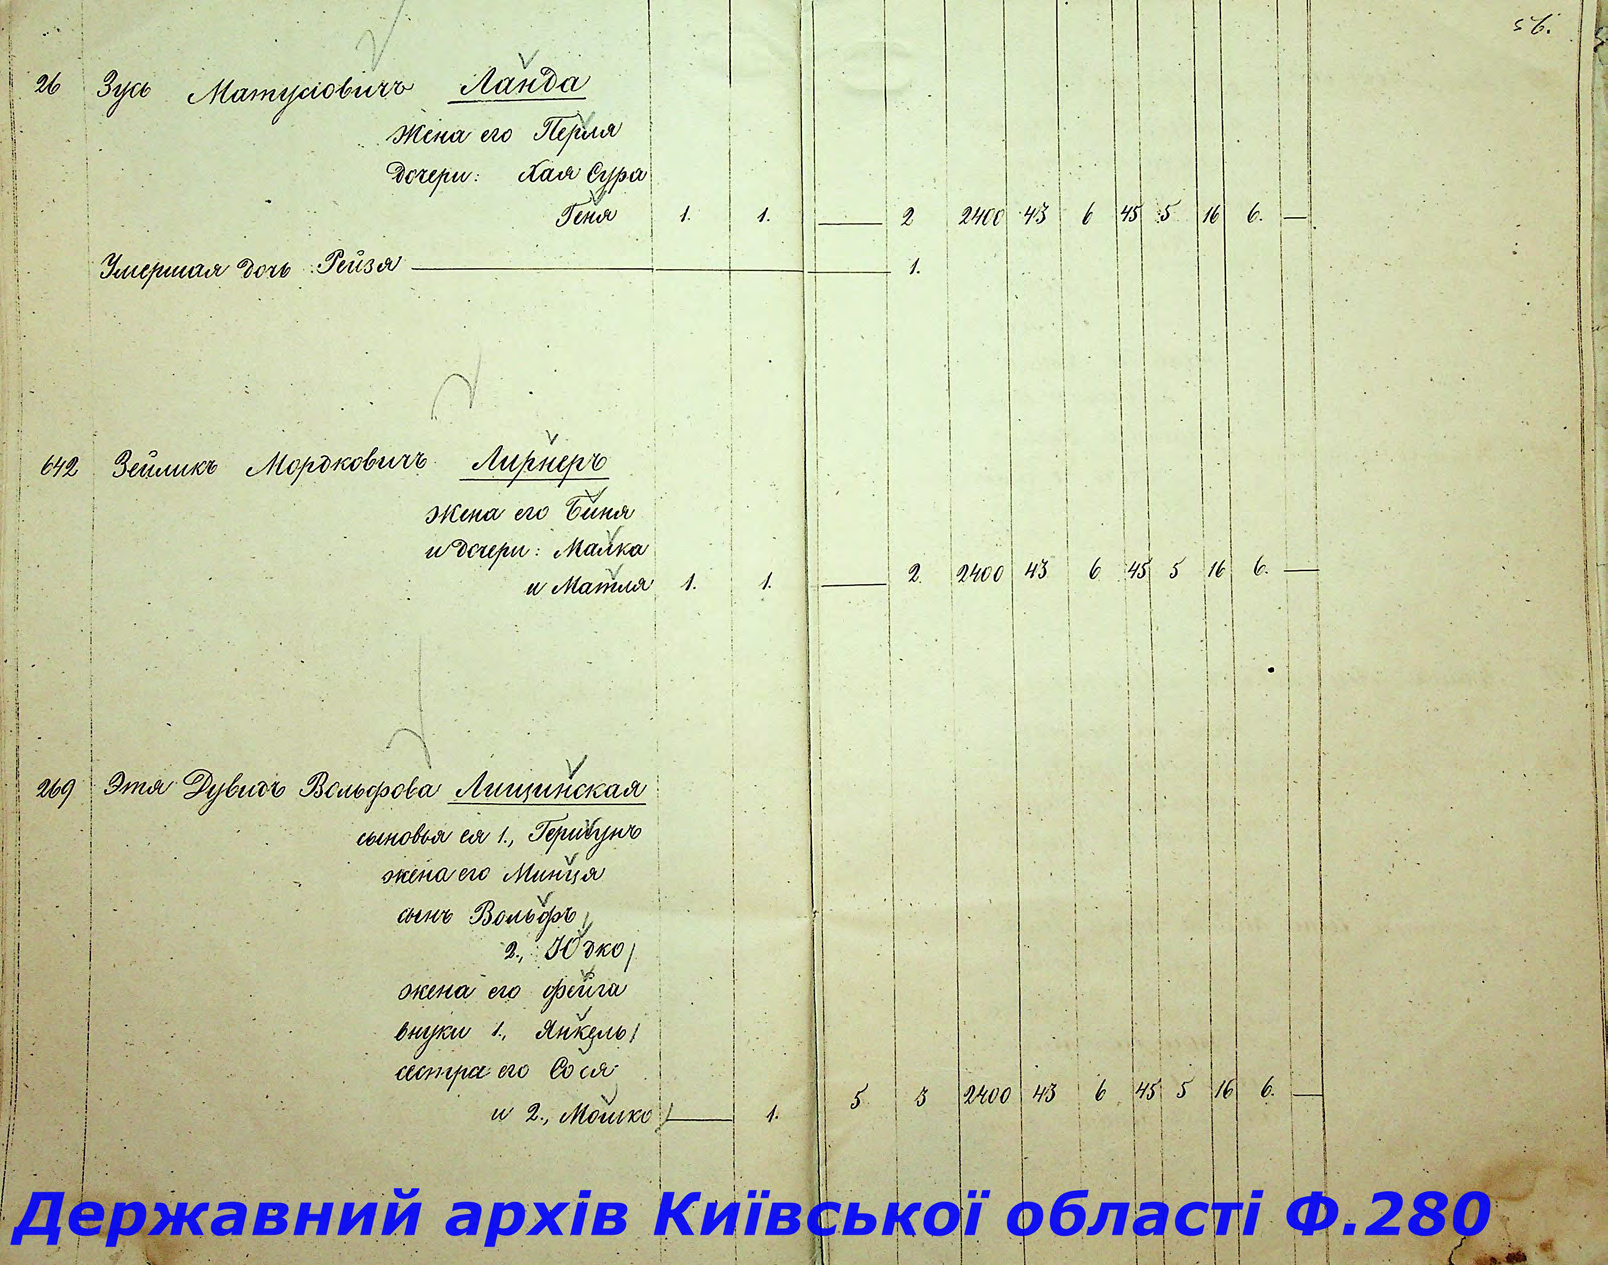 56.
26 Зусь Матусіовичъ Ланда
Жена его Перля
Дочери: Хая Сура
Геня 1. 1. — 2 2400 43 6 45 5 16 6. —
Умершая дочь Рейзя — 1.
642 Зейликъ Мордковичъ Лирнеръ
жена его Биня
и дочери: Малка
и Матля 1. 1. — 2. 2400 43 6 45 5 16 6. —
269 Этя Дувидъ Вольфова Лищинская
сыновья ея 1., Гершунъ
жена его Минця
сынъ Вольфъ
2., Юдко
жена его Фейга
внуки 1., Янкель
сестра его Сося
и 2., Мошко — 1. 5 3 2400 43 6 45 5 16 6. —
Державний архів Київської області Ф.280